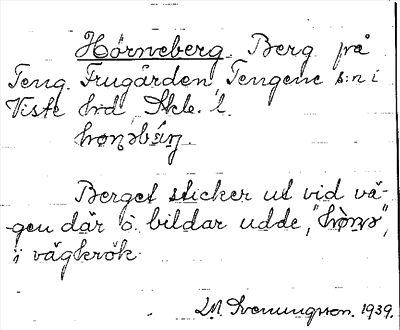 Hörneberg. Berg på
Teng. Frugården, Tengene s:n i
Viste hd, Skbl. l.

Berget sticker ut vid vä-
gen där ö. bildar udde,
i vägkrök.
LM Svenungsson. 1939.